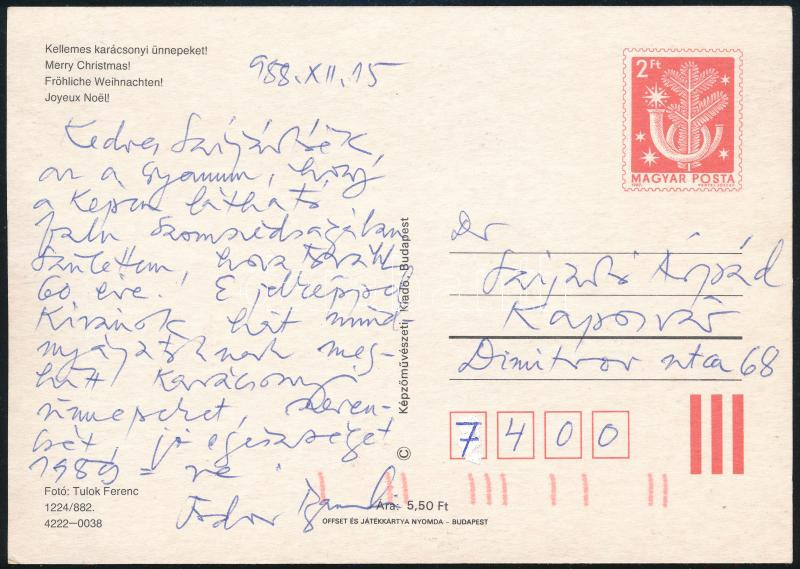 Kellemes karácsonyi ünnepeket!
Merry Christmas!
Fröhliche Weihnachten!
Joyeux Noël!
988.XII.15
Kedves Szijártóék,
az a gyanum, hogy
a képen látható
falu szomszédságában
születtem,
60 éve. E jelképpel
Kivánok hát mind-
nyájatoknak meg-
hitt Karácsonyi
ünnepeket, szeren-
csét, jó egészséget
1989-re
Fodor András
Fotó: Tulok Ferenc
1224/882.
4222—0038
Ára: 5,50 Ft
OFFSET ÉS JÁTÉKKÁRTYA NYOMDA – BUDAPEST
© Képzőművészeti Kiadó, Budapest
2 Ft
MAGYAR POSTA
Dr
Szijártó Árpád
Kaposvár
Dimitrov utca 68
7400